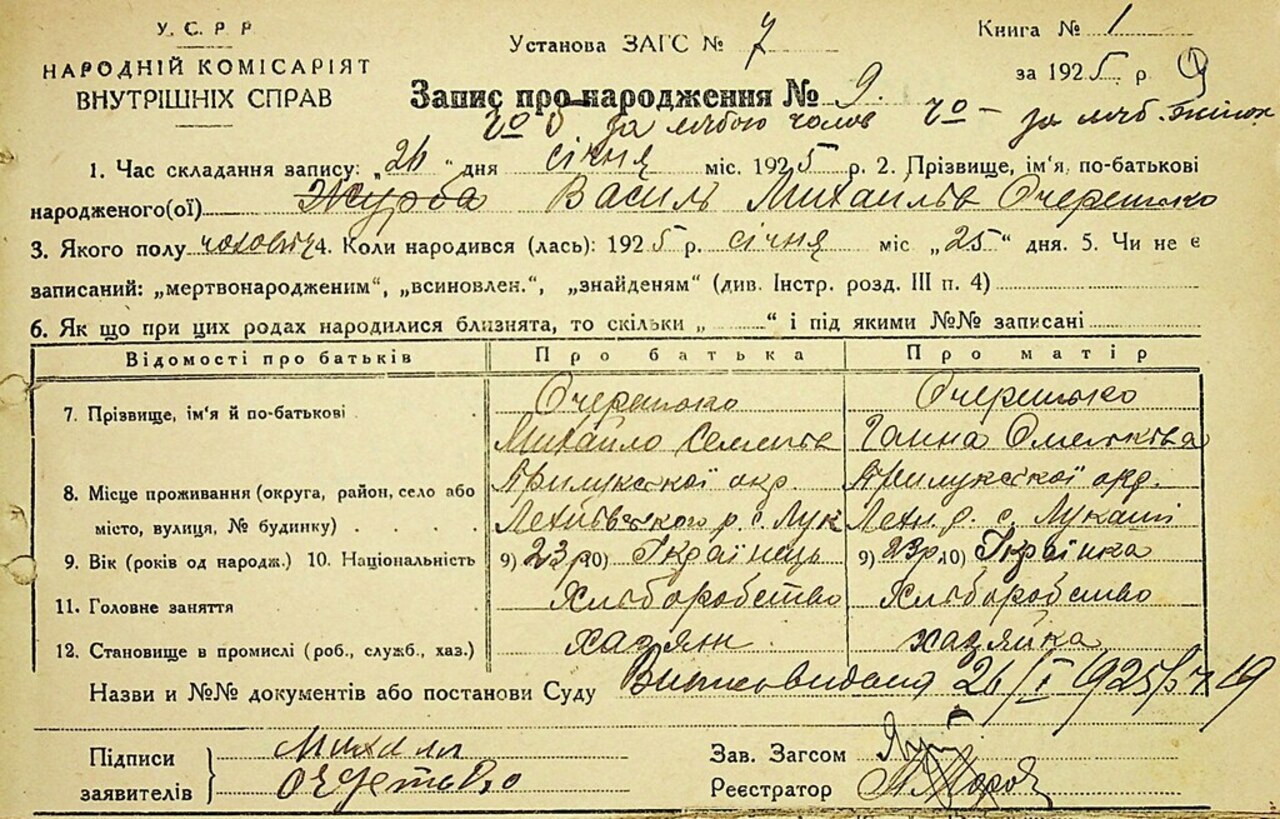 У. С. Р. Р.
НАРОДНІЙ КОМІСАРІЯТ
ВНУТРІШНІХ СПРАВ
Установа ЗАГС № 7
Книга № 1
за 1925 р.
Запис про народження № 9.
за лічбою чолов за ліч. жінок
1. Час складання запису: „26“ дня січня міс. 1925 р. 2. Прізвище, ім'я, по-батькові
народженого(ої) Журба Василь Очеретько
3. Якого полу 4. Коли народився (лась): 1925 р. січня міс „25“ дня. 5. Чи не є
записаний: „мертвонародженим“, „всиновлен.“, „знайденям“ (див. Інстр. розд. III п. 4)
6. Як що при цих родах народилися близнята, то скільки „ “ і під якими №№ записані
Відомості про батьків Про батька Про матір
7. Прізвище, ім'я й по-батькові Очеретько Очеретько
Михайло Ганна
8. Місце проживання (округа, район, село або Прилукської окр. Прилукської окр.
місто, вулиця, № будинку) р. с. Лук р. с. Лукаші
9. Вік (років од народж.) 10. Національність 9) 23 р 10) Українець 9) 23 р. 10) Українка
11. Головне заняття Хліборобство Хліборобство
12. Становище в промислі (роб., служб., хаз.) хазяїн хазяйка
Назви и №№ документів або постанови Суду 26/I 1925
Підписи
заявителів
Очеретько
Зав. Загсом
Реєстратор